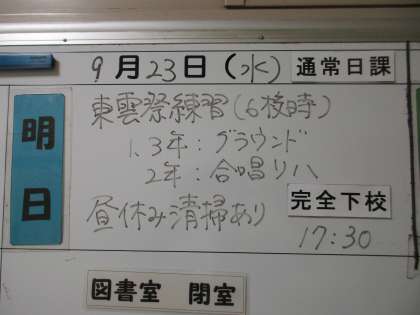 9月23日(水) 通常日課
明日
東雲祭練習(6校時)
1、3年:グラウンド
2年:合唱リハ
昼休み清掃あり
完全下校
17:30
図書室 閉室